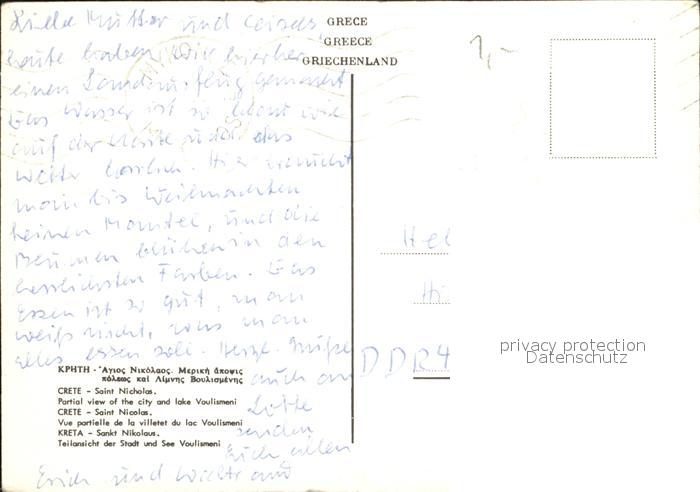 Liebe Mutter und
heute haben wir hierher
einen Landausflug gemacht
Das Wasser ist so blau wie
auf der Karte und das
Wetter herrlich. Hier braucht
man bis Weihnachten
keinen Mantel, und die
Bäumen blühen in den
herrlichsten Farben. Das
Essen ist so gut, man
weiß nicht, was man
alles essen soll. Herzl. Grüße
auch an
Lotte
senden
Euch allen
Erich und
GRECE
GREECE
GRIECHENLAND
1,-
Hel
Hi
DDR 4
ΚΡΗΤΗ - Ἅγιος Νικόλαος. Μερική ἄποψις
πόλεως καί Λίμνης Βουλισμένης
CRETE - Saint Nicholas.
Partial view of the city and lake Voulismeni
CRETE - Saint Nicolas.
Vue partielle de la villetet du lac Voulismeni
KRETA - Sankt Nikolaus.
Teilansicht der Stadt und See Voulismeni
privacy protection
Datenschutz